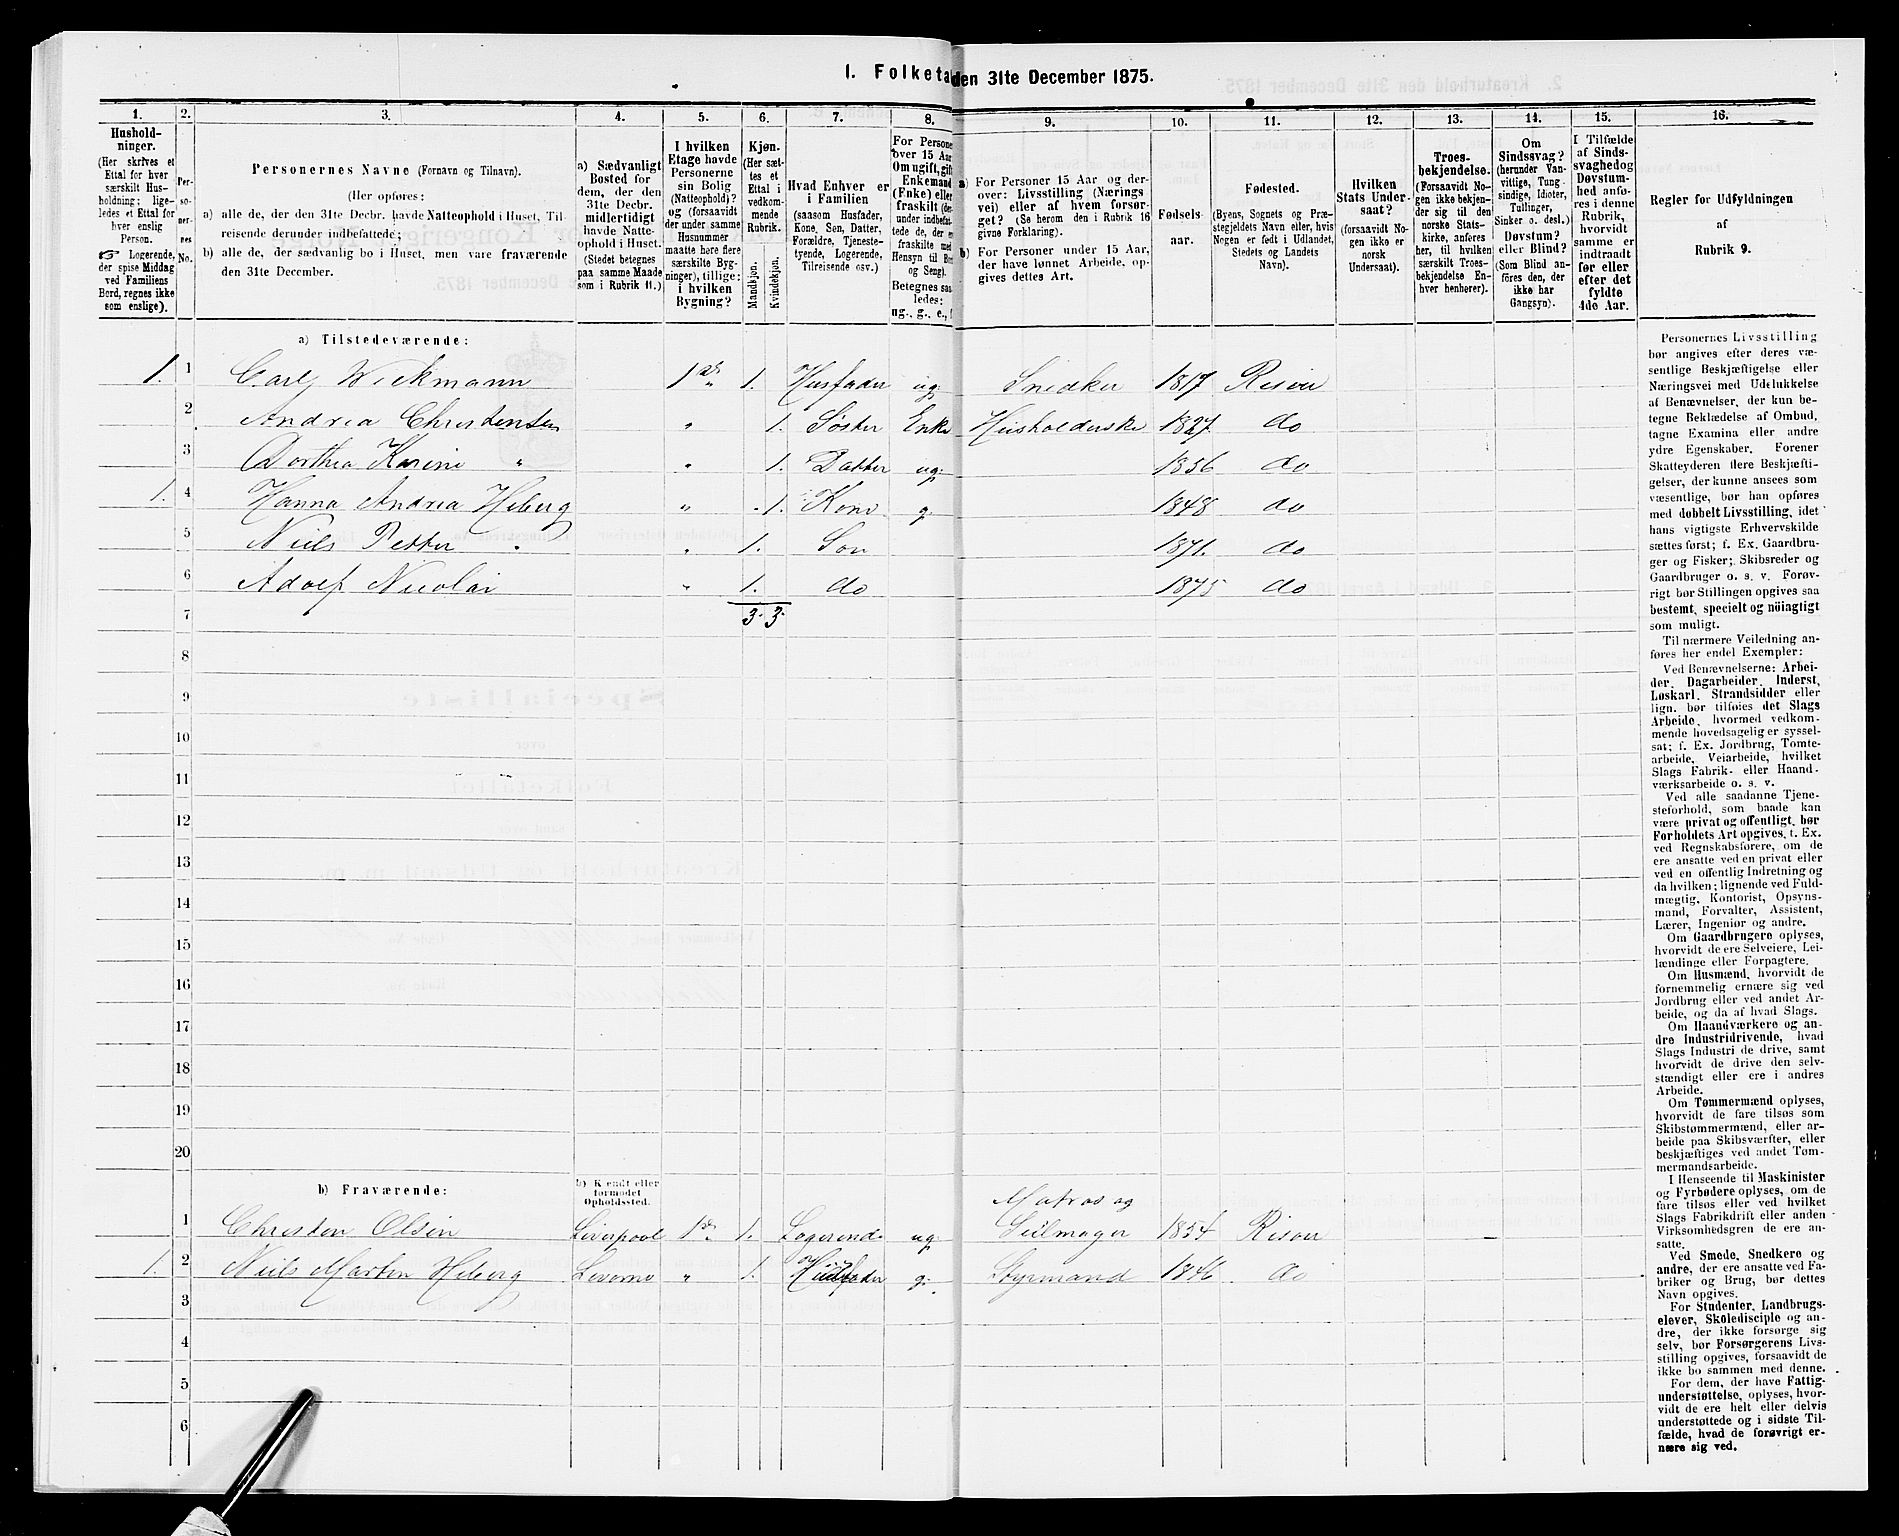 1. Folketal den 31te December 1875.
1. 2. 3. 4. 5. 6. 7. 8. 9. 10. 11. 12. 13. 14. 15. 16.
Hushold-
ninger.
(Her skrives et
Ettal for hver
særskilt Hus-
holdning; lige-
ledes et Ettal for
hver enslig
Person.
☞ Logerende,
der spise Middag
ved Familiens
Bord, regnes ikke
som enslige).
Per-
so-
ner-
nes
No.
Personernes Navne (Fornavn og Tilnavn).
(Her opføres:
a) alle de, der den 31te Decbr. havde Natteophold i Huset, Til-
reisende derunder indbefattede;
b) alle de, der sædvanlig bo i Huset, men vare fraværende
den 31te December.
a) Sædvanligt
Bosted for
dem, der den
31te Decbr.
midlertidigt
havde Natte-
ophold i Huset.
(Stedet betegnes
paa samme Maade
som i Rubrik 11.)
I hvilken
Etage havde
Personerne
sin Bolig
(Natteophold)?
og (forsaavidt
der under samme
Husnummer
maatte høre flere
særskilte Byg-
ninger), tillige:
i hvilken
Bygning?
Kjøn.
(Her sæt-
tes et
Ettal i
vedkom-
mende
Rubrik.
Mandkjøn.
Kvindekjøn.
Hvad Enhver er
i Familien
(saasom Husfader,
Kone, Søn, Datter,
Forældre, Tjeneste-
tyende, Logerende,
Tilreisende osv.)
For Persone
over 15 Aar
Om ugift, gift
Enkemand
(Enke) eller
fraskilt (der-
under indbefat-
tede de, der er
fraskilte med
Hensyn til Bor
og Seng).
Betegnes saa
ledes:
ug., g., e., f
a) For Personer 15 Aar og der-
over: Livsstilling (Nærings
vei) eller af hvem forsør-
get? (Se herom den i Rubrik 16
givne Forklaring).
b) For Personer under 15 Aar,
der have lønnet Arbeide, op-
gives dettes Art.
Fødsels-
aar.
Fødested.
(Byens, Sognets og Præ-
stegjeldets Navn eller, hvis
Nogen er født i Udlandet,
Stedets og Landets
Navn).
Hvilken
Stats Under-
saat?
(forsaavidt No-
gen ikke er
norsk
Undersaat).
Troes-
bekjendelse.
(Forsaavidt No-
gen ikke bekjen-
der sig til den
norske Stats-
kirke, anføres
her, til hvilken
særskilt Troes-
bekjendelse En-
hver henhører).
Om
Sindssvag?
(herunder Van-
vittige, Tung-
sindige, Idioter,
Tullinger,
Sinker o. desl.)
Døvstum?
eller Blind?
(Som Blind an-
føres den, der
ikke har
Gangsyn).
I Tilfælde
af Sinds-
svaghed og
Døvstum-
hed anfø-
res i denne
Rubrik,
hvorvidt
samme er
indtraadt
før eller
efter det
fyldte
4de Aar.
Regler for Udfyldningen
af
Rubrik 9.
a) Tilstedeværende:
1. 1 Carl Wickmann 1ste 1. Husfader ug: Snedker 1817 Risør
2 Andrea Christensen " 1. Søster Enke Husholderske 1827 do
3 Dorthea Karine " " 1. Datter ug: 1856 do
1. 4 Hanna Andrea Heberg " 1. Kone g. 1848 do
5 Niels Petter " " 1. Søn 1871. do
6 Adolf Nicolai " 1. do 1875 do
7 3. 3.
8
9
10
11
12
13
14
15
16
17
18
19
20
b) Fraværende:
b) Kjendt eller
formodet
Opholdssted.
1 Christen Olsen Liverpool 1ste 1. Logerende ug: Matros og
Seilmager 1854 Risør
1. 2 Niels Martin Heberg Livorno " 1. Husfader g. Styrmand 1846 do
3
4
5
6
Personernes Livsstilling
bør angives efter deres væ-
sentlige Beskjæftigelse eller
Næringsvei med Udelukkelse
af Benævnelser, der kun be-
tegne Beklædelse af Ombud,
tagne Examina eller andre
ydre Egenskaber. Forener
Skatteyderen flere Beskjæfti-
gelser, der kunne ansees som
væsentlige, bør han opføres
med dobbelt Livsstilling, idet
hans vigtigste Erhvervskilde
sættes først; f. Ex. Gaardbru-
ger og Fisker; Skibsreder og
Gaardbruger o. s. v. Forøv-
rigt bør Stillingen opgives saa
bestemt, specielt og nøiagtigt
som muligt.
Til nærmere Veiledning an-
føres her endel Exempler:
Ved Benævnelserne: Arbei-
der, Dagarbeider, Inderst,
Løskarl, Strandsidder eller
lign. bør tilføies det Slags
Arbeide, hvormed vedkom-
mende hovedsagelig er syssel-
sat; f. Ex. Jordbrug, Tomte-
arbeide, Veiarbeide, hvilket
Slags Fabrik- eller Haand-
værksarbeide o. s. v.
Ved alle saadanne Tjene-
steforhold, som baade kan
være privat og offentligt, bør
Forholdets Art opgives, t. Ex.
ved Regnskabsførere, om de
ere ansatte ved en privat eller
ved en offentlig Indretning og
da hvilken; lignende ved Fuld-
mægtig, Kontorist, Opsyns-
mand, Forvalter, Assistent,
Lærer, Ingeniør og andre.
Om Gaardbrugere oplyses,
hvorvidt de ere Selveiere, Lei-
lændinge eller Forpagtere.
Om Husmænd, hvorvidt de
fornemmelig ernære sig ved
Jordbrug eller ved andet Ar-
beide, og da af hvad Slags.
Om Haandværkere og an-
dre Industridrivende, hvad
Slags Industri de drive, samt
hvorvidt de drive den selv-
stændigt eller ere i andres
Arbeide.
Om Tømmermænd oplyses,
hvorvidt de fare tilsøs som
Skibstømmermænd, eller ar-
beide paa Skibsværfter, eller
beskjæftiges ved andet Tøm-
mermandsarbeide.
I Henseende til Maskinister
og Fyrbødere oplyses, om de
fare tilsøs eller ved hvilket
Slags Fabrikdrift eller anden
Virksomhedsgren de ere an-
satte.
Ved Smede, Snedkere og
andre, der ere ansatte ved Fa-
briker og Brug, bør dettes
Navn opgives.
For Studenter, Landbrugs-
elever, Skoledisciple og an-
dre, der ikke forsørge sig
selv, bør Forsørgerens Livs-
stilling opgives, forsaavidt de
ikke bo sammen med denne.
For dem, der have Fattig-
understøttelse, oplyses, hvor-
vidt de ere helt eller delvis
understøttede og i sidste Til-
fælde, hvad de forøvrigt er-
nære sig ved.